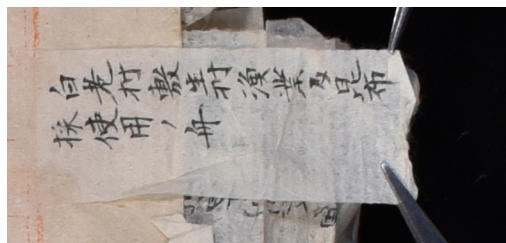 白老村敷生村漁業及昆布
採使用ノ舟